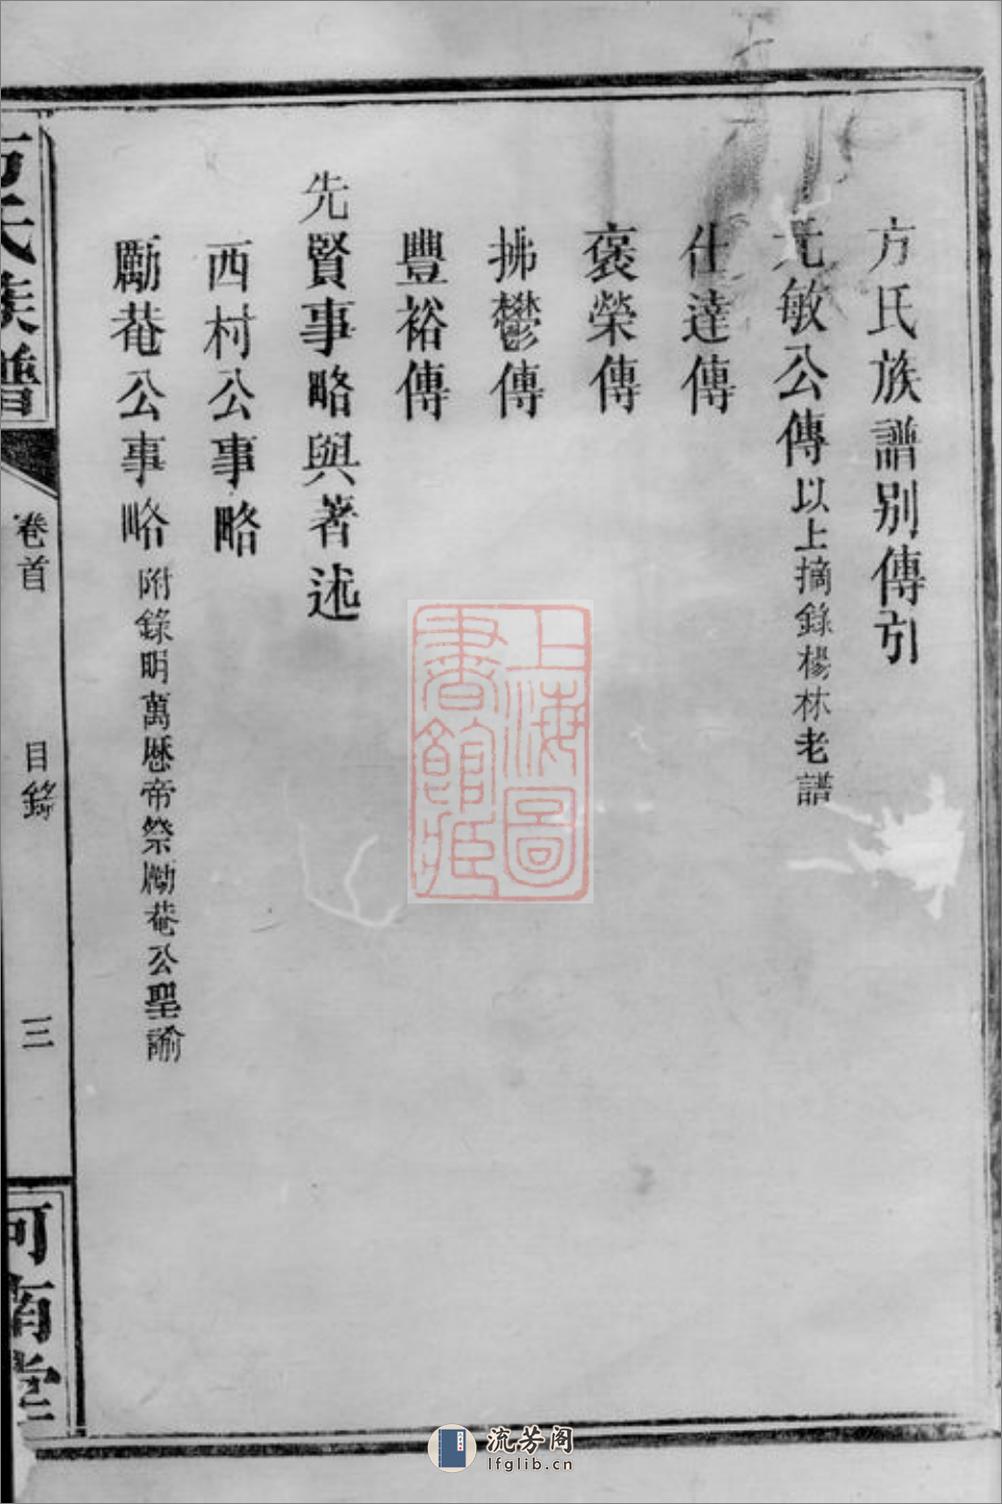 方氏族譜別傳引
元敏公傳以上摘錄楊林老譜
仕達傳
褒榮傳
拂鬱傳
豐裕傳
先賢事略與著述
西村公事略
勵菴公事略附錄明萬歷帝祭勵菴公聖諭
方氏族譜
卷首
目錄
三
河南堂
上海圖
書館藏
流芳阁
lfglib.cn